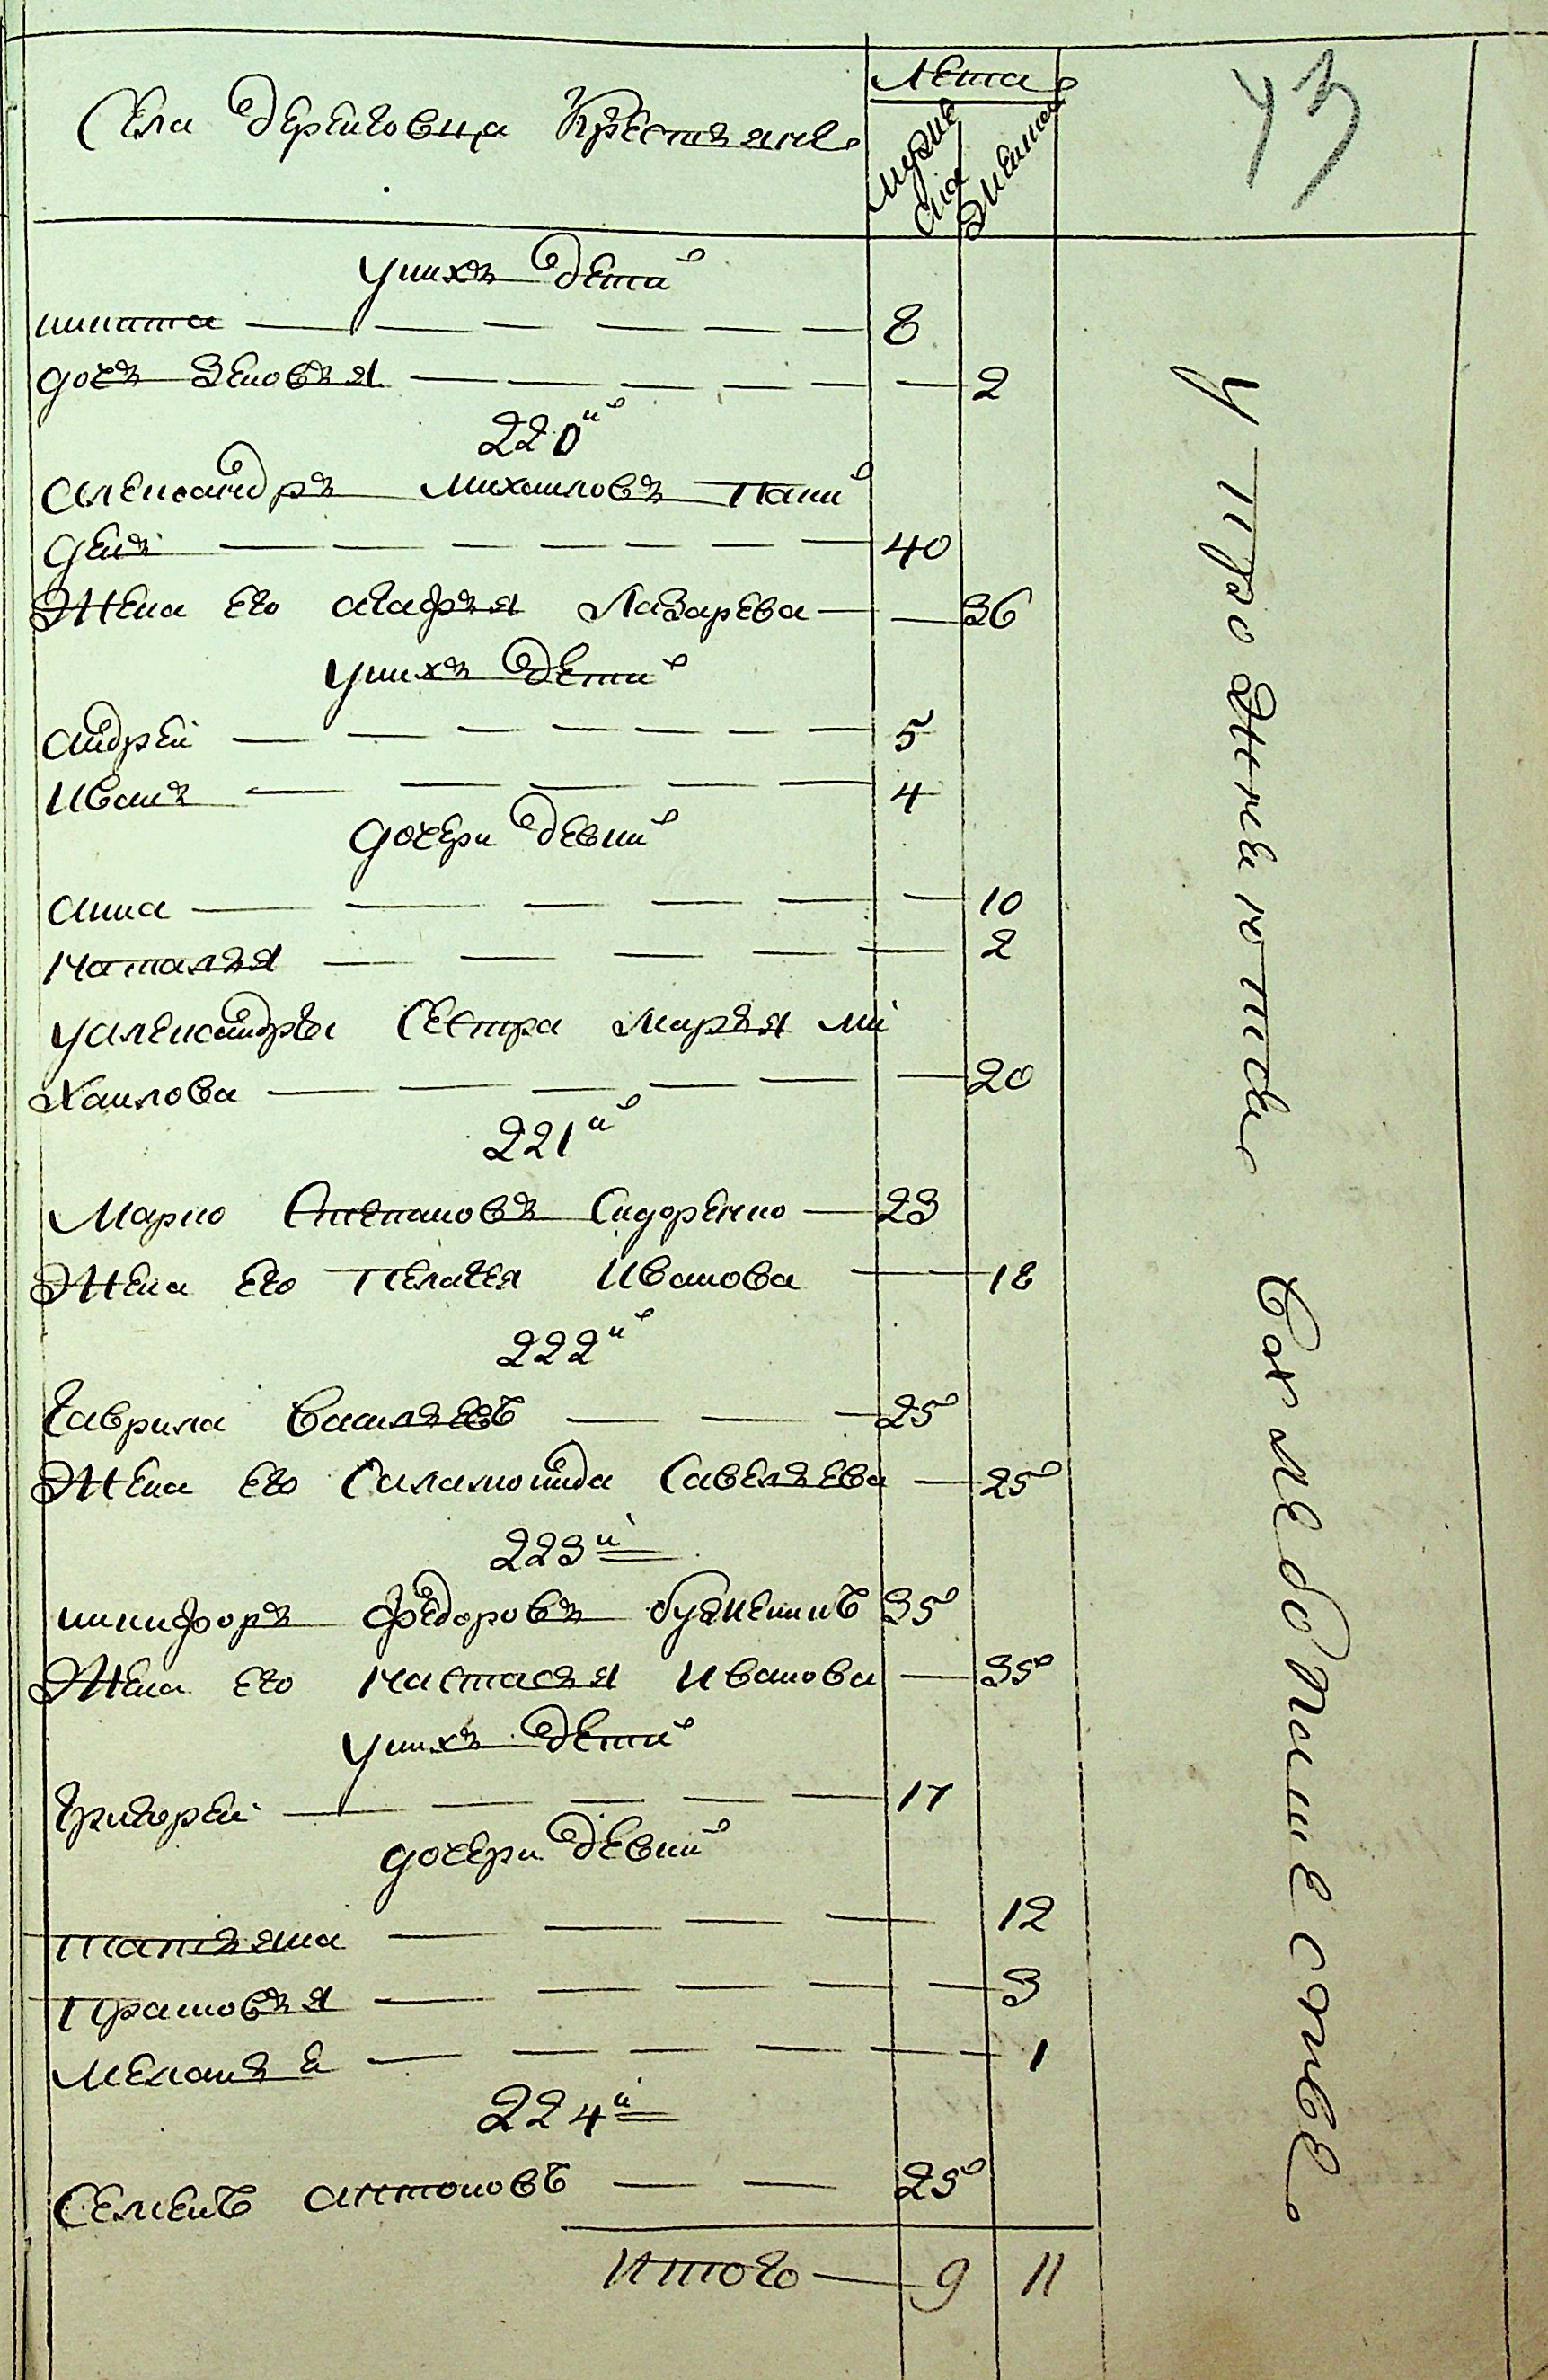 Села Дереговца Крестьяне
Лета
мужеска
женска
43
У них дети
никита 8
дочь Зеновья 2
220й
Александръ михаиловъ Пани
ченъ 40
Жена его агафья Лазарева 36
У них дети
андрей 5
Иванъ 4
дочери девки
анна 10
наталья 2
у александра Сестра марья ми
хаилова 20
221й
Марко Степановъ Сидоренко 23
Жена его Пелагея Иванова 18
222й
Гаврила Васильевъ 25
Жена его Саламонида Савельева 25
223й
никифоръ федоровъ 35
Жена его настасья Иванова 35
У них дети
Григорей 17
дочери девки
татьяна 12
Прасковья 3
меланья 1
224й
Семенъ антоновъ 25
Итого 9 11